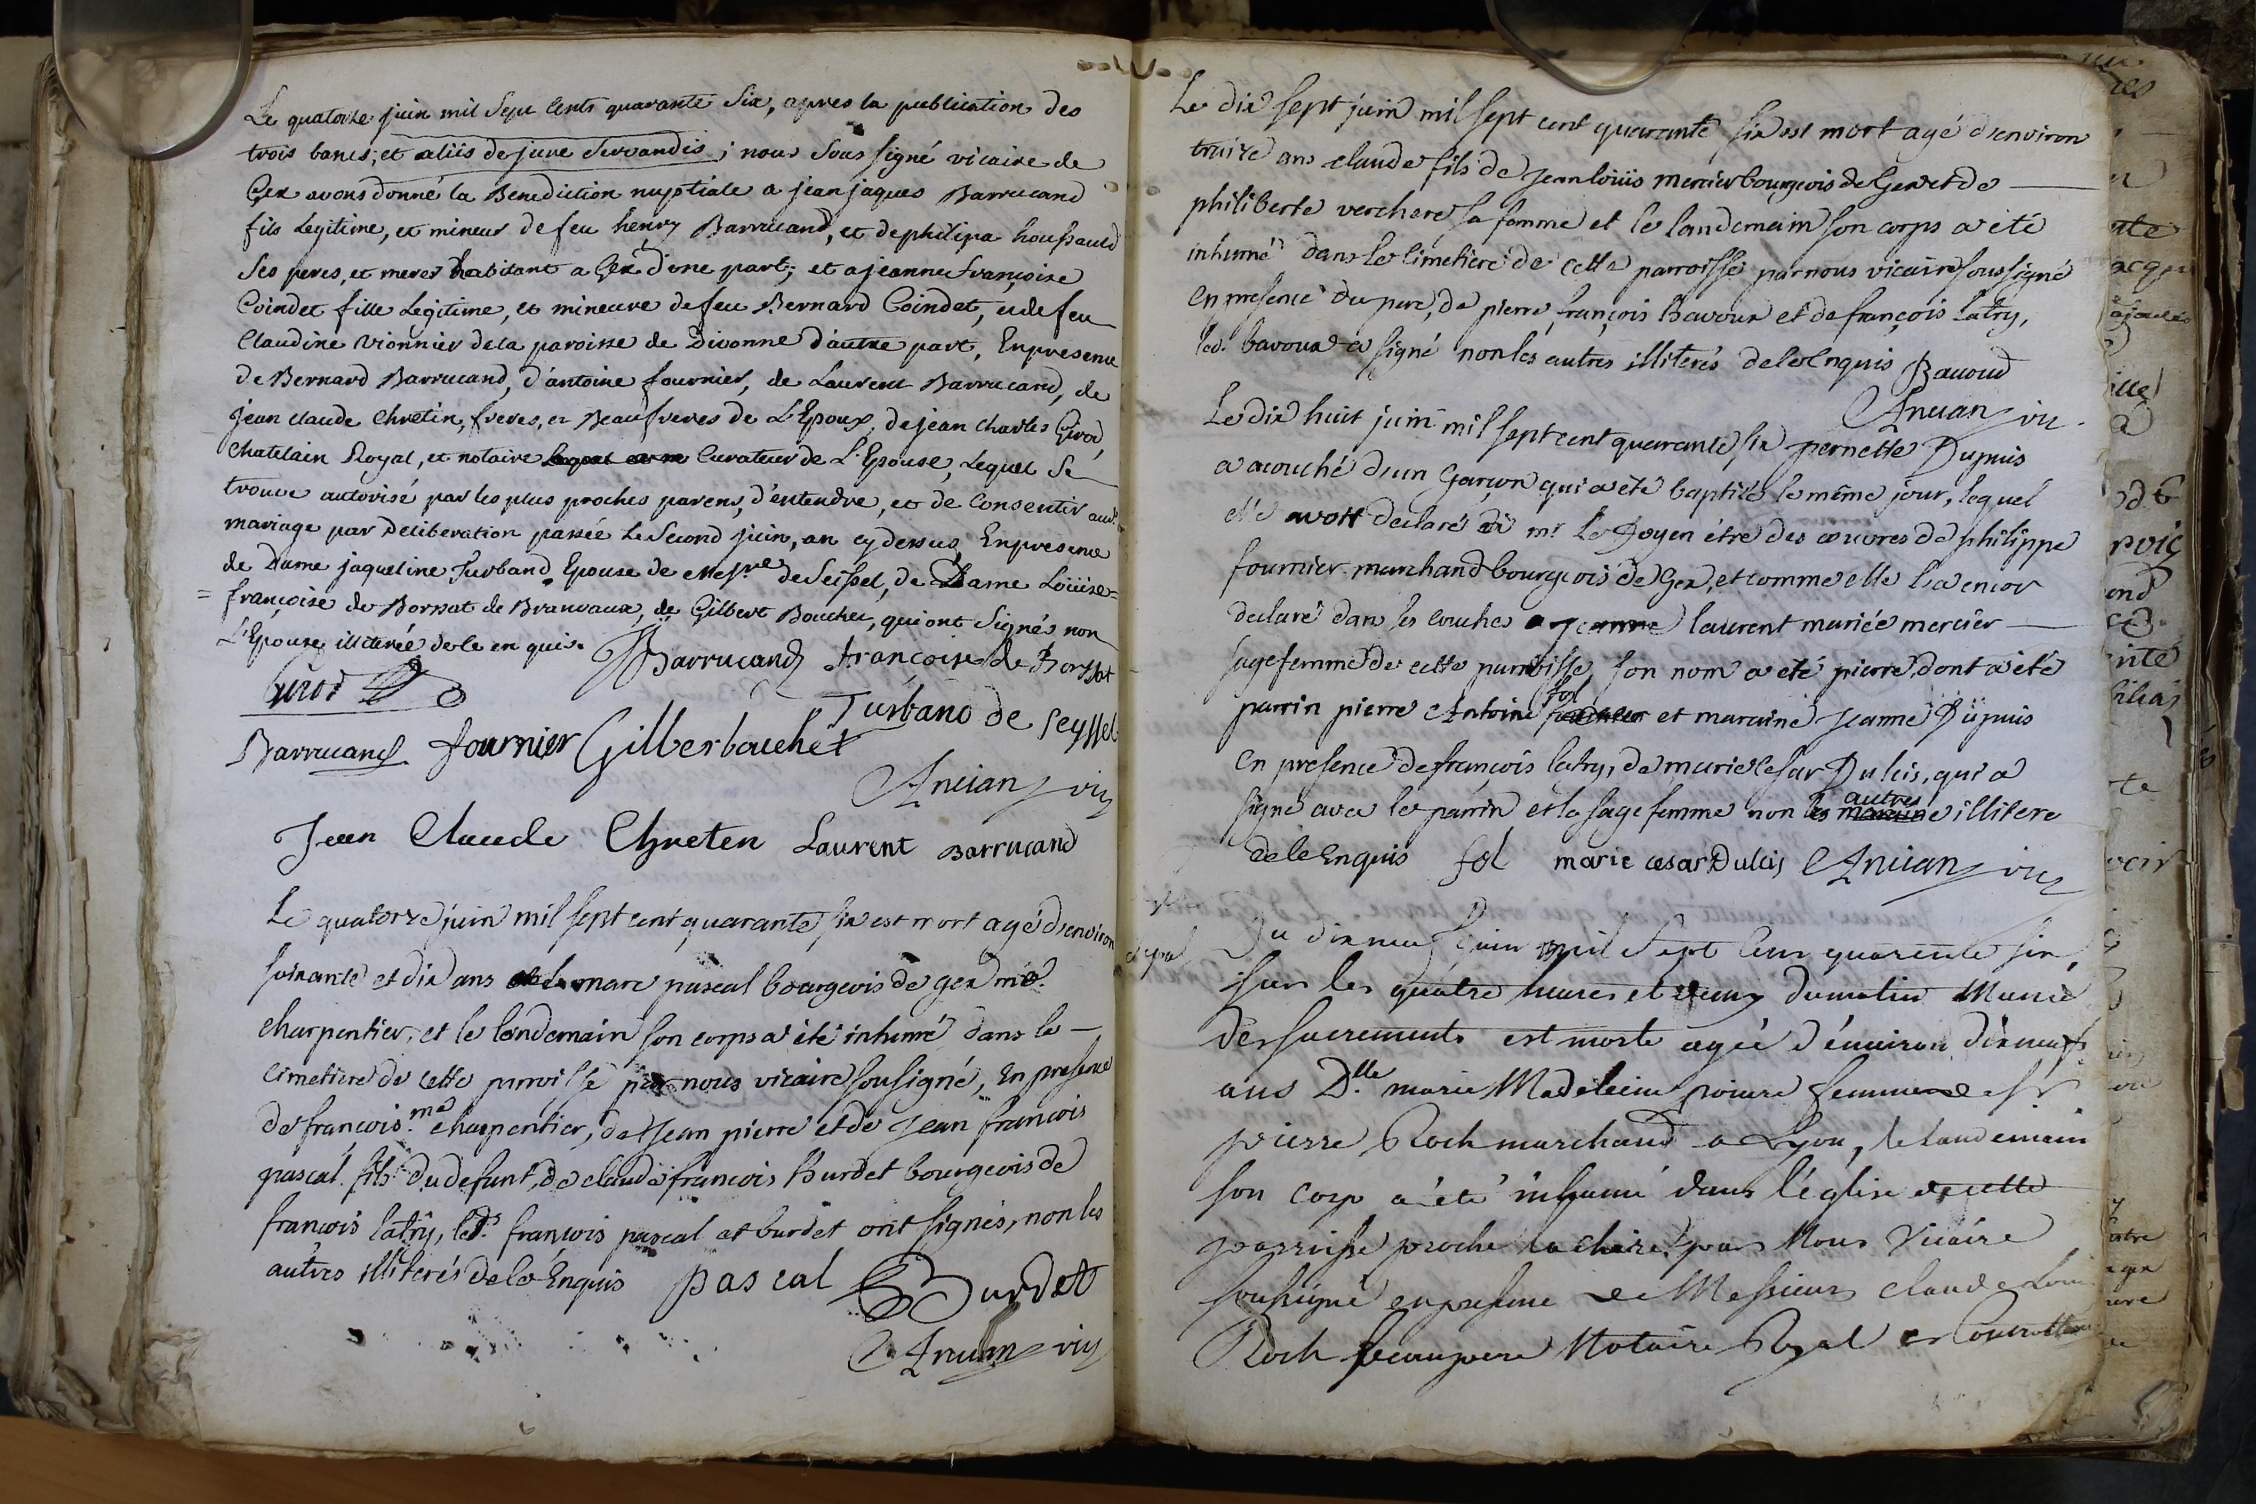 Le quatorze juin mil Sept Cents quarante Six, apres la publication des
trois bancs; et aliis de jure Servandis; nous Sous signé vicaire de
Gex avons donné la Benediction nuptiale a jean jaques Barrucand
fils Legitime, et mineur de feu henry Barrucand, et de philipa houssauld
Ses peres, et meres habitant a Gex d'une part; et a jeanne françoise
Coindet fille Legitime, et mineure de feu Bernard Coindet, et de feu
Claudine Vionnier de la paroisse de Divonne d'autre part, En presence
de Bernard Barrucand, d'antoine fournier, de Laurent Barrucand, de
jean claude Chretin, freres, et Beaufreres de L'Epoux, de jean charles Girod,
Chatelain Royal, et notaire Curateur de L'Epouse, Lequel Se
trouve autorisé par les plus proches parens, d'entendre, et de Consentir aud.
mariage par Deliberation passée Le Second juin, an cy dessus, En presence
de Dame jaqueline Turband Epouse de de Seissel, de Dame Loüise=
= françoise de Borssat de Branvaux, de Gilbert Bouchet, qui ont Signés non
L'Epouse illiterée de le en quise
JJBarrucand françoise de Borssat
Girod
Turband de Seyssel
Barrucand fournier Gilberbouchet
Ancian vic
Jean Claude Chreten Laurent Barrucand
Le quatorze juin mil sept cent quarante six est mort agé d'environ
soixante et dix ans marc pascal bourgeois de gex me.
charpentier, et le landemain son corps a été inhumé dans le
cimetiere de cette parroisse par nous vicaire sousigné, En presence
de françois me charpentier, de Jean pierre et de Jean françois
pascal fils du defunt, de claude françois Burdet bourgeois de
françois latry, leds. françois pascal et burdet ont signés, non les
autres illiterés de le Enquis pascal Burdet
Ancian vic
Le dix sept juin mil sept cent quarante six est mort agé d'environ
traize ans claude fils de Jean loüis mercier bourgeois de Gex et de
philiberte verchere sa femme et le landemain son corps a été
inhumé dans le cimetiere de cette parroisse par nous vicaire soussigné
En presence du pere, de pierre françois Bavoux et de françois Latry,
led. bavoux a signé non les autres illiterés de le Enquis Bavoud
Ancian vic.
Le dix huit juin mil sept cent quarante six pernette Dupuis
a acouché d'un Garçon qui a été baptisé le même jour, lequel
elle avoit declaré à mr Le Doyen être des œuvres de philippe
fournier marchand bourgeois de Gex, et comme elle l'a encor
declaré dans les couches a jeanne laurent mariée mercier
sagefemme de cette parroisse, son nom a été pierre, dont a été
parrin pierre Antoine fol et maraine Jeanne Dupuis
En presence de françois latry, de marie cesar Dulcis, qui a
signé avec le parrin et la sagefemme non les autres illitere
de le Enquis fol marie cesar Dulcis Ancian vic
Du dixneuf Juin mil Sept Cent quarente six,
sur les quatre heures et demy du matin Munie
des sacrements est morte agée d'environ dixneuf
ans Dlle marie Madeleine femme de sr
pierre Roch marchand a Lyon, le landemain
son corp a été inhumé dans l'église de cette
parroisse proche la chaire par Nous Vicaire
soussigné en presence de Messieurs claude Loui
Roch beaupere Notaire Royal et